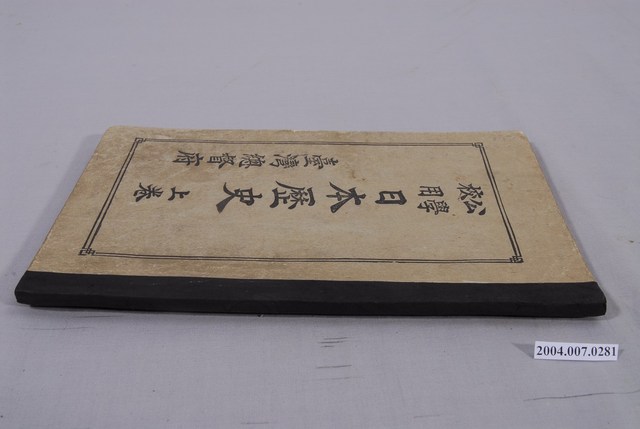 公學校用
日本歷史 上卷
臺灣總督府
2004.007.0281